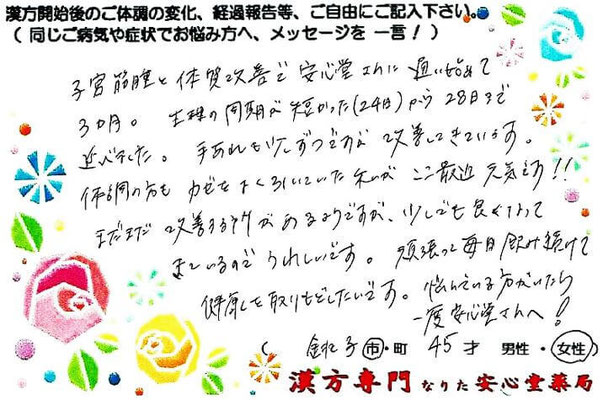 漢方開始後のご体調の変化、経過報告等、ご自由にご記入下さい。
（同じご病気や症状でお悩み方へ、メッセージを 一言！）
子宮筋腫と体質改善で 安心堂さんに 通い始めて
3カ月。 生理の周期が 短かった(24日)から 28日まで
延びました。 手あれも少しずつですが 改善してきています。
体調の方も カゼをよく引いていた私が ここ最近 元気です!!
まだまだ 改善する所があるようですが、少しでも良くなって
きているので うれしいです。 頑張って毎日飲み続けて
健康を取りもどしたいです。 悩んでいる方がいたら
一度安心堂さんへ!
( 金子 市・町 45才 男性・女性 )
漢方専門 なりた 安心堂薬局